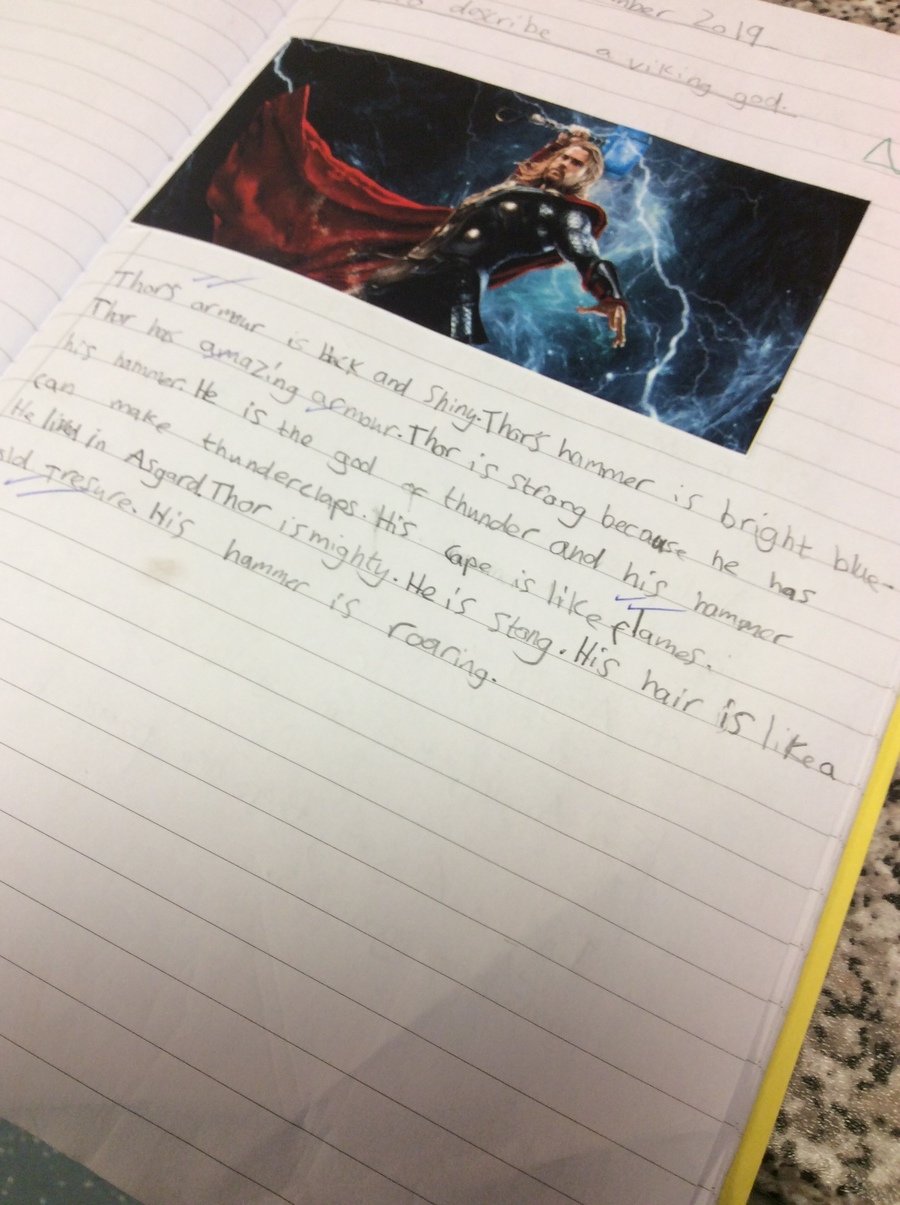 mber 2019
to describe a viking god.
Thor's armour is black and Shiny. Thor's hammer is bright blue.
Thor has amazing armour. Thor is strong because he has
his hammer. He is the god of thunder and his hammer
can make thunderclaps. His cape is like flames.
He lived in Asgard. Thor is mighty. He is stong. His hair is like a
old Tresure. His hammer is roaring.